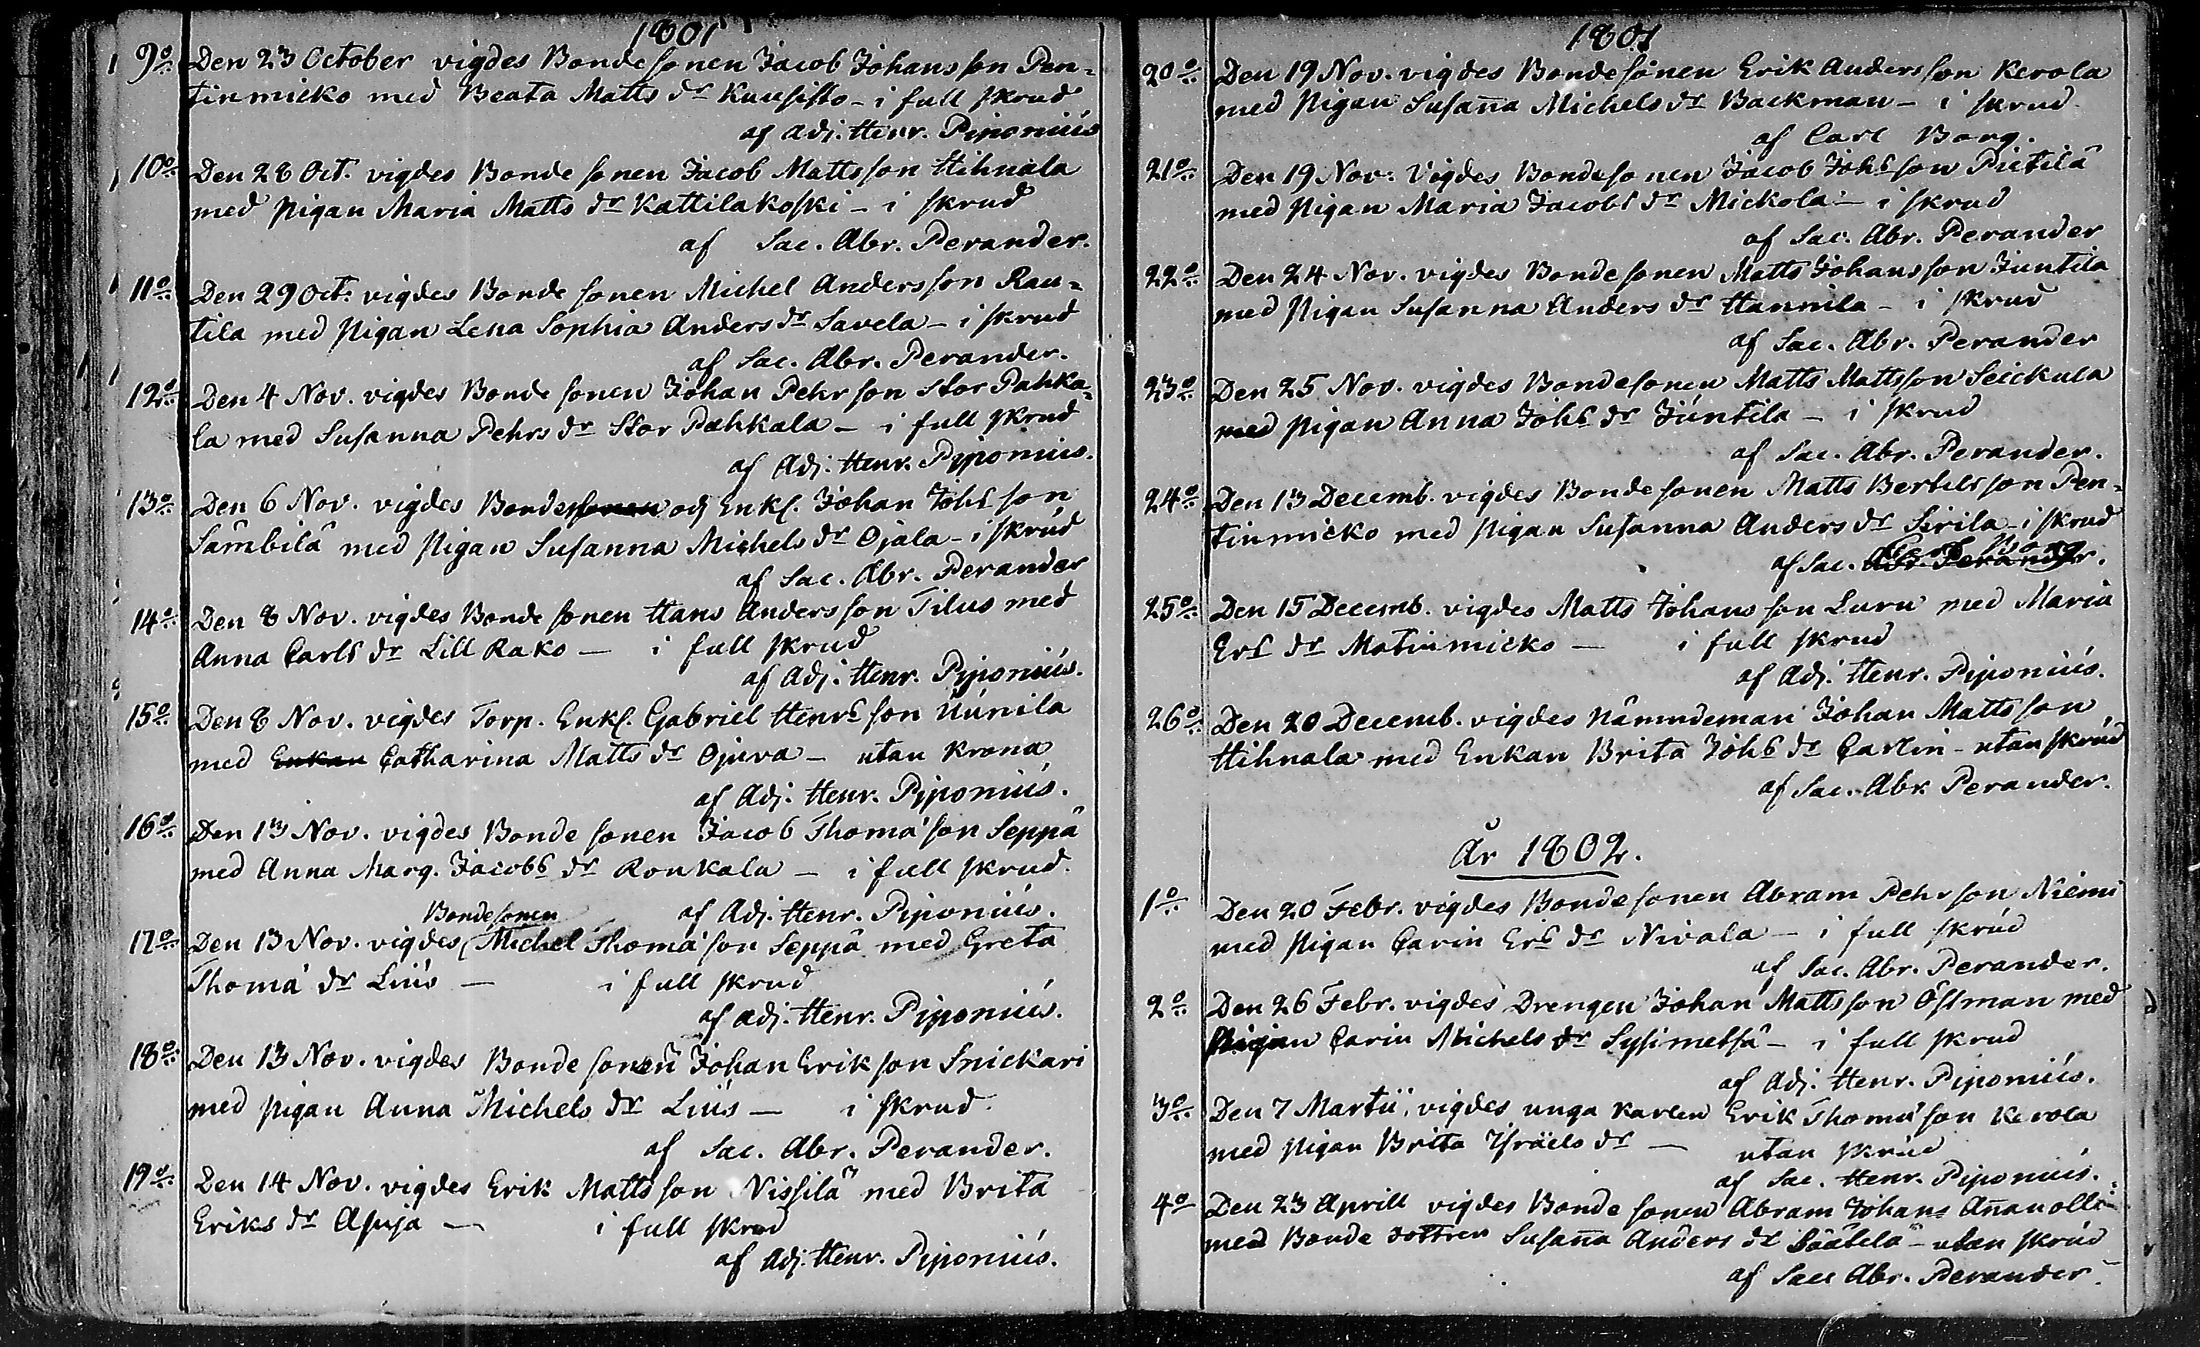 1801
9o Den 23 October vigdes Bondesonen Jacob Johansson Pen=
tinmicko med Beata Matts dr Kuusisto - i full skrud
af adj. Henr. Piponius
10o Den 28 Oct. vigdes Bondesonen Jacob Mattsson Hihnala
med pigan Maria Matts dr Kattilakoski - i skrud
af Sac. Abr. Perander.
11o Den 29 Oct. vigdes Bondesonen Michel Andersson Rau=
tila med pigan Lena Sophia Anders dr Savela - i skrud
af Sac. Abr. Perander.
12o Den 4 Nov. vigdes Bondesonen Johan Pehrson Stor Pahka=
la med Susanna Pehrs dr Stor Pahkala - i full skrud
af Adj. Henr. Piponius.
13o Den 6 Nov. vigdes Bondesonen och Enkl. Johan Johsson
Sämbilä med pigan Susanna Michels dr Ojala - i skrud
af Sac. Abr. Perander
14o Den 8 Nov. vigdes Bondesonen Hans Andersson Tilus med
Anna Carls dr Lill Rako - i full skrud
af Adj. Henr. Piponius.
15o Den 8 Nov. vigdes Torp. Enkl. Gabriel Henrsson Uunila
med Enkan Catharina Matts dr Ojuva - utan krona
af Adj. Henr. Piponius.
16o Den 13 Nov. vigdes Bondesonen Jacob Thomasson Seppä
med Anna Marg. Jacobs dr Ronkala - i full skrud.
af Adj. Henr. Piponius.
Bondesonen
17o Den 13 Nov. vigdes Michel Thomasson Seppä med Greta
Thoma dr Lius - i full skrud
af adj. Henr. Piponius.
18o Den 13 Nov. vigdes Bondesonen Johan Erikson Snickari
med pigan Anna Michels dr Lius - i skrud.
af Sac. Abr. Perander.
19o Den 14 Nov. vigdes Erik Mattsson Nissilä med Brita
Eriks dr Asuja - i full skrud
af Adj. Henr. Piponius.
1801
20o Den 19 Nov. vigdes Bondesonen Erik Andersson Kerola
med pigan Susaña Michels dr Backman - i skrud.
af Carl Borg.
21o Den 19 Nov. Vigdes Bondesonen Jacob Johsson Pietilä
med pigan Maria Jacobs dr Mickola - i skrud
af Sac. Abr. Perander
22o Den 24 Nov. vigdes Bondesonen Matts Johansson Juntila
med pigan Susanna Anders dr Hannila - i skrud
af Sac. Abr. Perander
23o Den 25 Nov. vigdes Bondesonen Matts Mattsson Seickula
med pigan Anna Johs dr Juntila - i skrud
af Sac. Abr. Perander.
24o Den 13 Decemb. vigdes Bondesonen Matts Bertilsson Pen=
tinmicko med pigan Susanna Anders dr Sirila - i skrud
Carl Borg
af Sac. Abr. Perander.
25o Den 15 Decemb. vigdes Matts Johansson Luru med Maria
Ers dr Matinmicko - i full skrud
af Adj. Henr. Piponius.
26o Den 20 Decemb. vigdes Nämndeman Johan Mattsson
Hihnala med Enkan Brita Johs dr Carlin - utan skrud
af Sac. Abr. Perander.
År 1802.
1o Den 20 Febr. vigdes Bondesonen Abram Pehrson Niemi
med pigan Carin Ers dr Nivala - i full skrud
af Sac. Abr. Perander.
2o Den 26 Febr. vigdes Drengen Johan Mattsson Östman med
Pigan Carin Michels dr Sysimetsä - i full skrud
af Adj. Henr. Piponius.
3o Den 7 Martii, vigdes unga karlen Erik Thomasson Kerola
med pigan Brita Israels dr - utan skrud
af Sac. Henr. Piponius.
4o Den 23 Aprill vigdes Bondesonen Abram Johans Añanolli
med Bonde dottren Susaña Anders dr Säätelä - utan skrud
af Sac Abr. Perander.